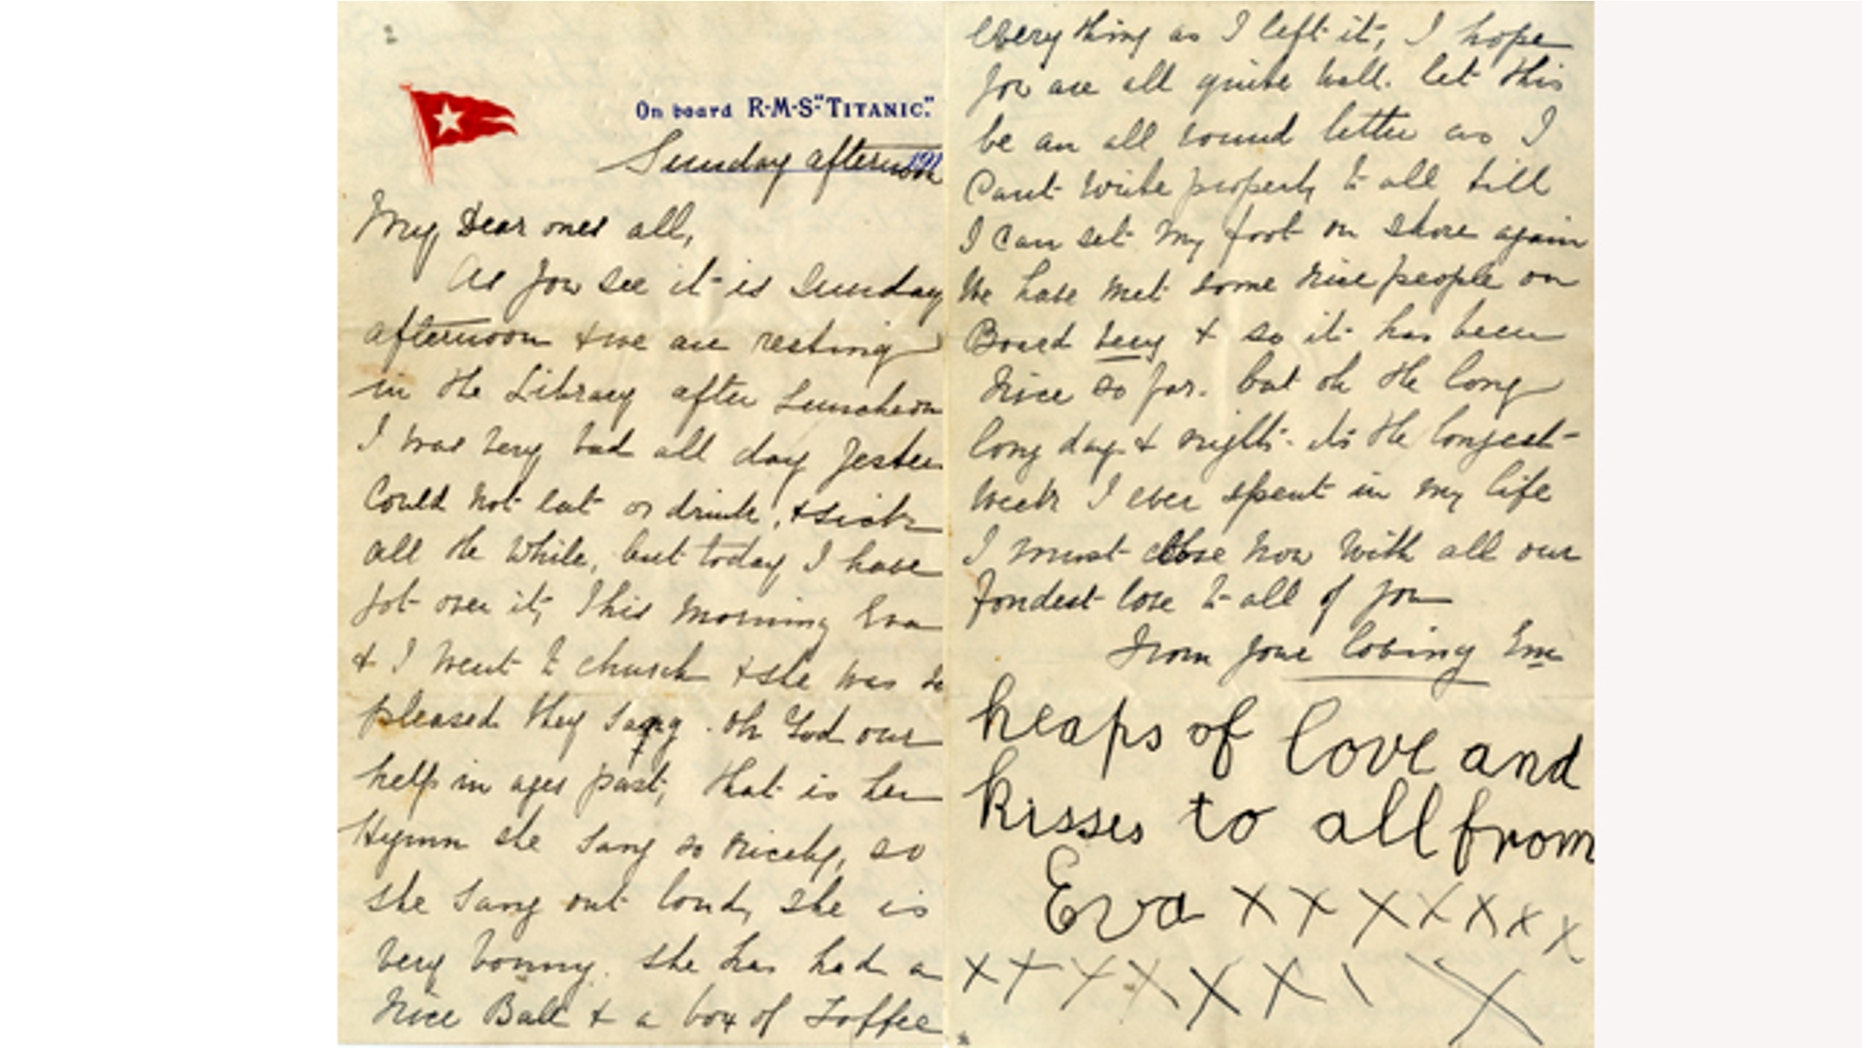 On board R·M·S·"TITANIC."
Sunday afternoon
My Dear ones all,
As you see it is Sunday
afternoon & we are resting
in the Library after Luncheon
I was very bad all day Yester
Could not eat or drink, & sick
all the while, but today I have
got over it, This Morning Eva
& I went to church & she was so
pleased they sang Oh God our
help in ages past, that is her
Hymn she sang so nicely, so
she sang out loud, she is
very bonny. She has had a
Nice Ball & a box of Toffee
every thing as I left it, I hope
you are all quite well. let this
be an all round letter as I
Cant write properly to all till
I can set my foot on shore again
We have met some nice people on
Board & so it has been
Nice so far. but oh the long
long day & nights its the longest
Week I ever spent in my life
I must close now with all our
fondest love to all of you
From your loving Em
heaps of love and
kisses to all from
Eva x x x x x x x
x x x x x x \ x